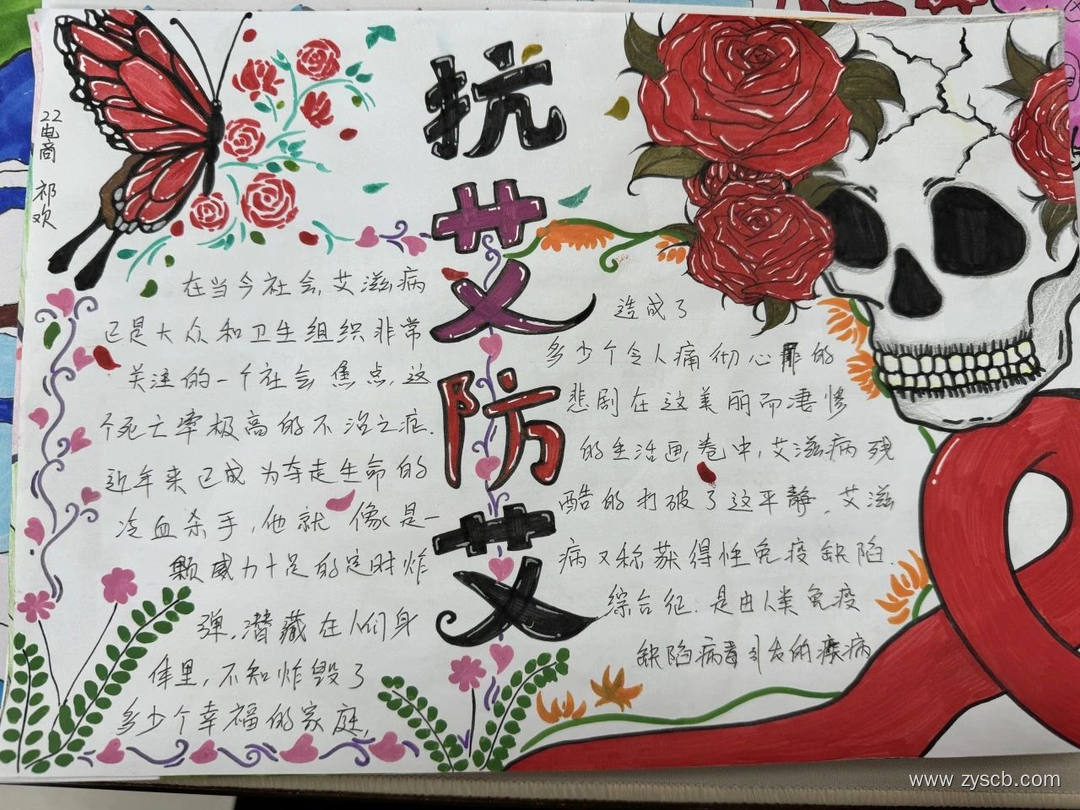 22电商 祁欢
抗艾防艾
在当今社会,艾滋病
已是大众和卫生组织非常
关注的一个社会焦点,这
个死亡率极高的不治之症.
近年来已成为夺走生命的
冷血杀手,他就像是一
颗威力十足的定时炸
弹,潜藏在人们身
体里,不知炸毁了
多少个幸福的家庭,
造成了
多少个令人痛彻心扉的
悲剧在这美丽而凄惨
的生活画卷中,艾滋病残
酷的打破了这平静,艾滋
病又称获得性免疫缺陷
综合征.是由人类免疫
缺陷病毒引发的疾病
www.zyscb.com